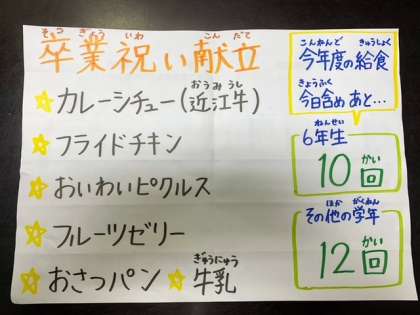 そつ ぎょう いわ こん だて
卒業祝い献立
おうみ うし
☆カレーシチュー(近江牛)
☆フライドチキン
☆おいわいピクルス
☆フルーツゼリー
ぎゅうにゅう
☆おさつパン ☆牛乳
こんねんど きゅうしょく
今年度の給食
きょうふく
今日含め あと…
ねんせい
6年生
かい
10回
ほか がくねん
その他の学年
かい
12回